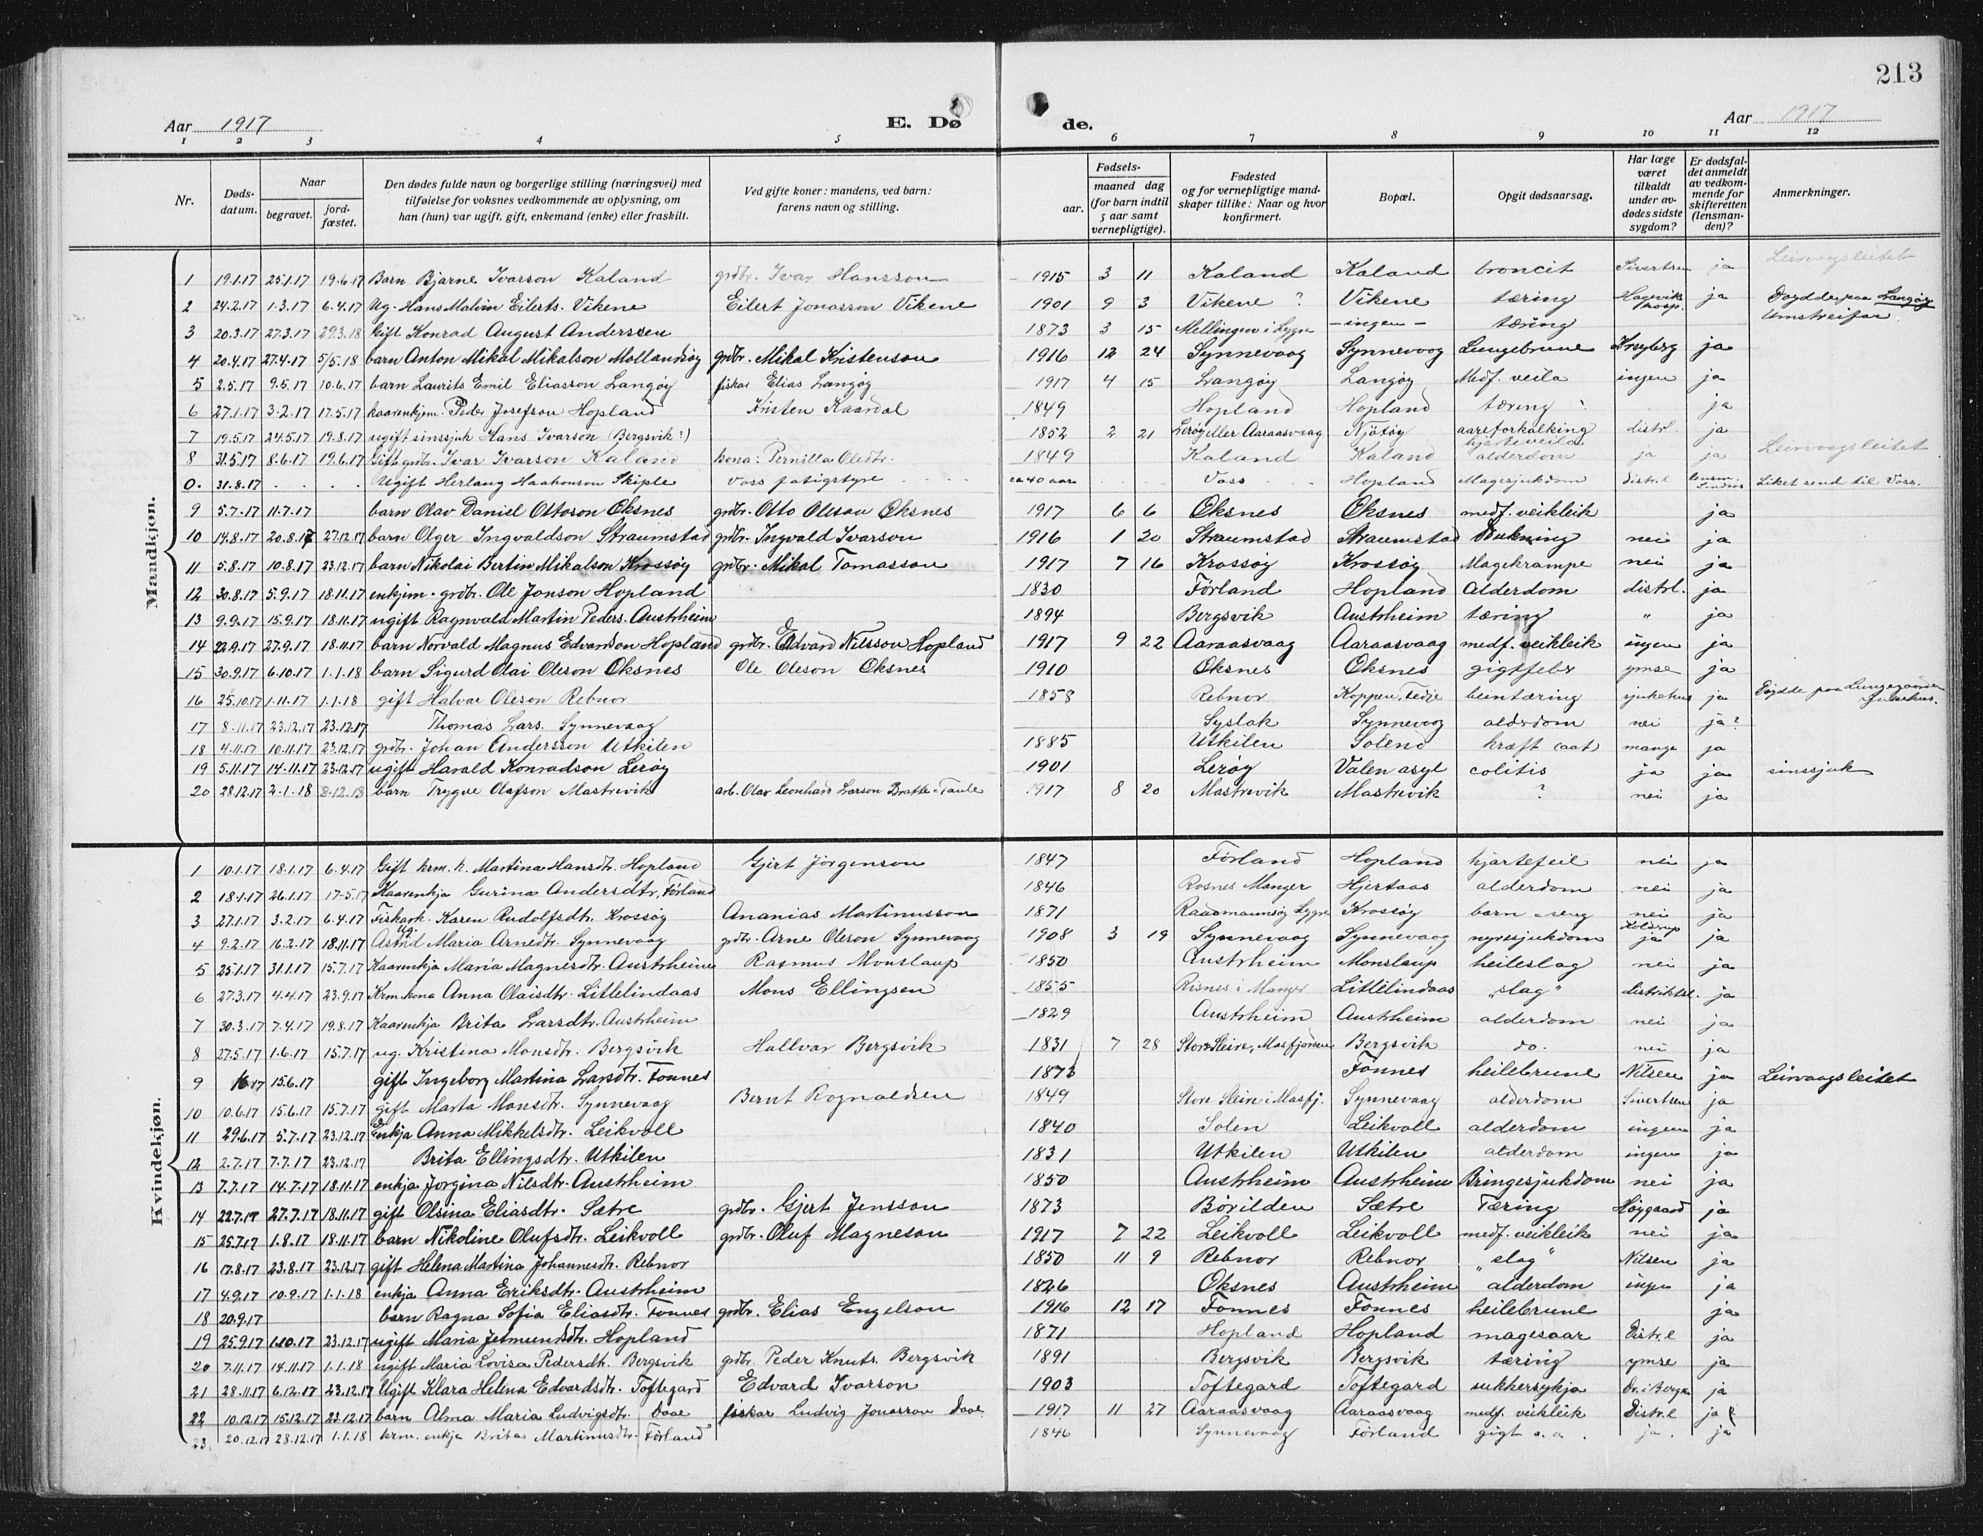 213
Aar 1917 E. Dø de. Aar 1917
1 2 3 4 5 6 7 8 9 10 11 12
Nr. Døds-datum. Naar begravet. jord-fæstet. Den dødes fulde navn og borgerlige stilling (næringsvei) med tilføielse for voksnes vedkommende av oplysning, om han (hun) var ugift, gift, enkemand (enke) eller fraskilt. Ved gifte koner: mandens, ved barn: farens navn og stilling. Fødsels- aar. maaned dag (for barn indtil 5 aar samt vernepligtige). Fødested og for vernepligtige mandskaper tillike: Naar og hvor konfirmert. Bopæl. Opgit dødsaarsag. Har læge været tilkaldt under avdødes sidste sygdom? Er dødsfaldet anmeldt av vedkommende for skifteretten (lensmanden)? Anmerkninger.
Mandkjøn.
1 19.1.17 25.1.17 19.6.17 Barn Bjarne Ivarson Kaland grdbr. Ivar Hansson 1915 3 11 Kaland Kaland broncit Sivertsen ja Leirvaagsleitet
2 24.2.17 1.3.17 6.4.17 Ug. Hans Malvin Eilerts. Vikene Eilert Jonasson Vikene 1901 9 3 Vikene ? Vikene tæring Hagevik hosp. ja Døydde paa Langøy
3 20.3.17 27.3.17 29.3.18 Gift Konrad August Anderssen 1873 3 15 Mellingen i Lygre -ingen- tæring Umstreifar
4 20.4.17 27.4.17 5/5.18 barn Anton Mikal Mikalson Mollandsøy grdbr. Mikal Kristenson 1916 12 24 Synnevaag Synnevaag Lungebrune Kreyberg ja
5 2.5.17 9.5.17 10.6.17 barn Laurits Emil Eliasson Langøy fiskar Elias Langøy 1917 4 15 Langøy Langøy Medf. veila ingen ja
6 27.1.17 3.2.17 17.5.17 kaarenkjem. Peder Josefson Hopland Kristen Kaardal 1849 Hopland Hopland tæring ja
7 19.5.17 24.5.17 19.8.17 ugift sinssjuk Hans Ivarson (Bergsvik?) 1852 2 21 Lerøy eller Aaraasvaag Njøtøy aareforkalking hjarteveila distrl. ja
8 31.5.17 8.6.17 19.6.17 Gift grdbr. Ivar Ivarson Kaland kona: Pernilla Olesdtr. 1849 Kaland Kaland alderdom ja ja Leirvaagsleitet
0. 31.8.17 Ugift Herlaug Haahonson Skiple Voss fatigstyre ca 40 aar Voss Hopland Magesjukdom distr.l lensm. Liket send til Voss.
9 5.7.17 11.7.17 barn Olav Daniel Ottoson Oksnes grdbr. Otto Oleson Oksnes 1917 6 6 Oksnes Oksnes medf. veikleik ja
10 14.8.17 20.8.17 27.12.17 barn Olger Ingvaldson Straumstad grdbr. Ingvald Ivarson 1916 1 20 Straumstad Straumstad Drukning nei ja
11 5.8.17 10.8.17 23.12.17 barn Nikolai Bertin Mikalson Krossøy grdbr. Mikal Tomasson 1917 7 16 Krossøy Krossøy Magekrampe nei ja
12 30.8.17 5.9.17 18.11.17 enkjem. grdbr. Ole Jonson Hopland 1830 Førland Hopland Alderdom distrl. ja
13 9.9.17 15.9.17 18.11.17 ugift Ragnvald Martin Peders. Austrheim 1894 Bergsvik Austrheim tæring " ja
14 22.9.17 27.9.17 18.11.17 barn Norvald Magnus Edvardson Hopland grdbr. Edvard Nilsson Hopland 1917 9 22 Aaraasvaag Aaraasvaag medf. veikleik ingen ja
15 30.9.17 6.10.17 1.1.18 barn Sigurd Olai Oleson Oksnes Ole Oleson Oksnes 1910 Oksnes Oksnes gigtfeber ymse ja
16 25.10.17 1.11.17 1.1.18 gift Halvar Oleson Rebnor 1858 Rebnor Koppen, Fedje beintæring sjukehus ja Døydde paa Lungegaarden sjukehus.
17 8.11.17 23.12.17 23.12.17 Thomas Lars. Synnevaag Syslak Synnevaag alderdom nei ja?
18 4.11.17 10.11.17 23.12.17 grdbr. Johan Andersson Utkilen 1885 Utkilen Solend kræft (aat) mange ja
19 5.11.17 14.11.17 23.12.17 ugift Harald Konradson Lerøy 1901 Lerøy Valen asyl colitis ja ja sinssjuk
20 28.12.17 2.1.18 8.12.18 barn Trygve Olafson Mastrevik arb. Olav Leonhard Larson Bratte-Taule 1917 8 20 Mastrevik Mastrevik ? nei ja
Kvindekjøn.
1 10.1.17 18.1.17 6.4.17 Gift krm. k. Martina Hansdtr. Hopland Gjert Jørgenson 1847 Førland Hopland hjartefeil nei ja
2 18.1.17 26.1.17 17.5.17 Kaarenkja Gurina Andersdtr. Førland 1846 Rosnes Manger Hjertaas alderdom nei ja
3 27.1.17 3.2.17 6.4.17 Fiskark. Karen Rudolfsdtr. Krossøy Ananias Martinusson 1871 Raadmannsøy Lygre Krossøy barn-seng nei ja
4 9.2.17 16.2.17 18.11.17 Ug. Astrid Maria Arnedtr. Synnevaag grdbr. Arne Oleson Synnevaag 1908 3 19 Synnevaag Synnevaag nyresjukdom Koldrup ja ja
5 25.1.17 31.1.17 15.7.17 Kaarenkja Maria Magnesdtr. Austrheim Rasmus Monslaup 1850 Austrheim Monslaup heileslag nei ja
6 27.3.17 4.4.17 23.9.17 Krm. kona Anna Olaisdtr. Litlelindaas Mons Ellingsen 1855 Risnes i Manger Litlelindaas "slag" distriktsl. ja
7 30.3.17 7.4.17 19.8.17 Kaarenkja Brita Larsdtr. Austrheim 1829 Austrheim Austrheim alderdom nei ja
8 27.5.17 1.6.17 15.7.17 ug. Kristina Monsdtr. Bergsvik Hallvar Bergsvik 1831 7 28 Store Steire, Masfjorden Bergsvik do. nei ja
9 15.6.17 gift Ingeborg Martina Larsdtr. Fonnes 1873 Fonnes heilebrune Nilsen ja Leirvaagsleitet
10 10.6.17 15.6.17 15.7.17 gift Marta Monsdtr. Synnevaag Bernt Rognaldsen 1849 Store Steire i Masfj. Synnevaag alderdom Sivertsen ja
11 29.6.17 5.7.17 23.12.17 Enkja Anna Mikkelsdtr. Leikvoll 1840 Solen Leikvoll alderdom ingen ja
12 2.7.17 7.7.17 23.12.17 Brita Ellingsdtr. Utkilen 1831 Utkilen Utkilen alderdom ingen ja
13 7.7.17 14.7.17 18.11.17 enkja Jorgina Nilsdtr. Austrheim 1850 Austrheim Austrheim Bringesjukdom nei ja
14 22.7.17 27.7.17 18.11.17 gift Olsina Eliasdtr. Sætre grdbr. Gjert Jensson 1873 Børilden Sætre Tæring Høygaard ja
15 25.7.17 1.8.17 18.11.17 barn Nikoline Olufsdtr. Leikvoll grdbr. Oluf Magneson 1917 7 22 Leikvoll Leikvoll medf. veikleik nei ja
16 17.8.17 23.8.17 23.12.17 gift Helena Martina Johannesdtr. Rebnor 1850 11 9 Rebnor Rebnor "slag" Nilsen ja
17 4.9.17 10.9.17 1.1.18 enkja Anna Eriksdtr. Austrheim 1826 Oksnes Austrheim alderdom ingen ja
18 20.9.17 barn Ragna Sofia Eliasdtr. Fonnes grdbr. Elias Engelson 1916 12 17 Fonnes Fonnes heilebrune ja
19 25.9.17 1.10.17 23.12.17 ugift Maria Jetmundsdtr. Hopland 1871 Hopland Hopland magesaar Distr.l ja
20 7.11.17 14.11.17 1.1.18 ugift Maria Lovisa Pedersdtr. Bergsvik grdbr. Peder Knuts. Bergsvik 1891 Bergsvik Bergsvik tæring ymse ja
21 28.11.17 6.12.17 23.12.17 Ugift Klara Helena Edvardsdtr. Toftegard Edvard Ivarson 1903 Toftegard Toftegard sukkersykja Dr. i Bergen ja
22 10.12.17 15.12.17 23.12.17 barn Alma Maria Ludvigsdtr. Daae fiskar Ludvig Jonasson Daae 1917 11 27 Aaraasvaag Aaraasvaag medf. veikleik Distr.l ja
23. 20.12.17 28.12.17 1.1.18 krm. enkja Brita Martinusdtr. Førland 1846 Synnevaag Førland gigt o.a. ja. ja